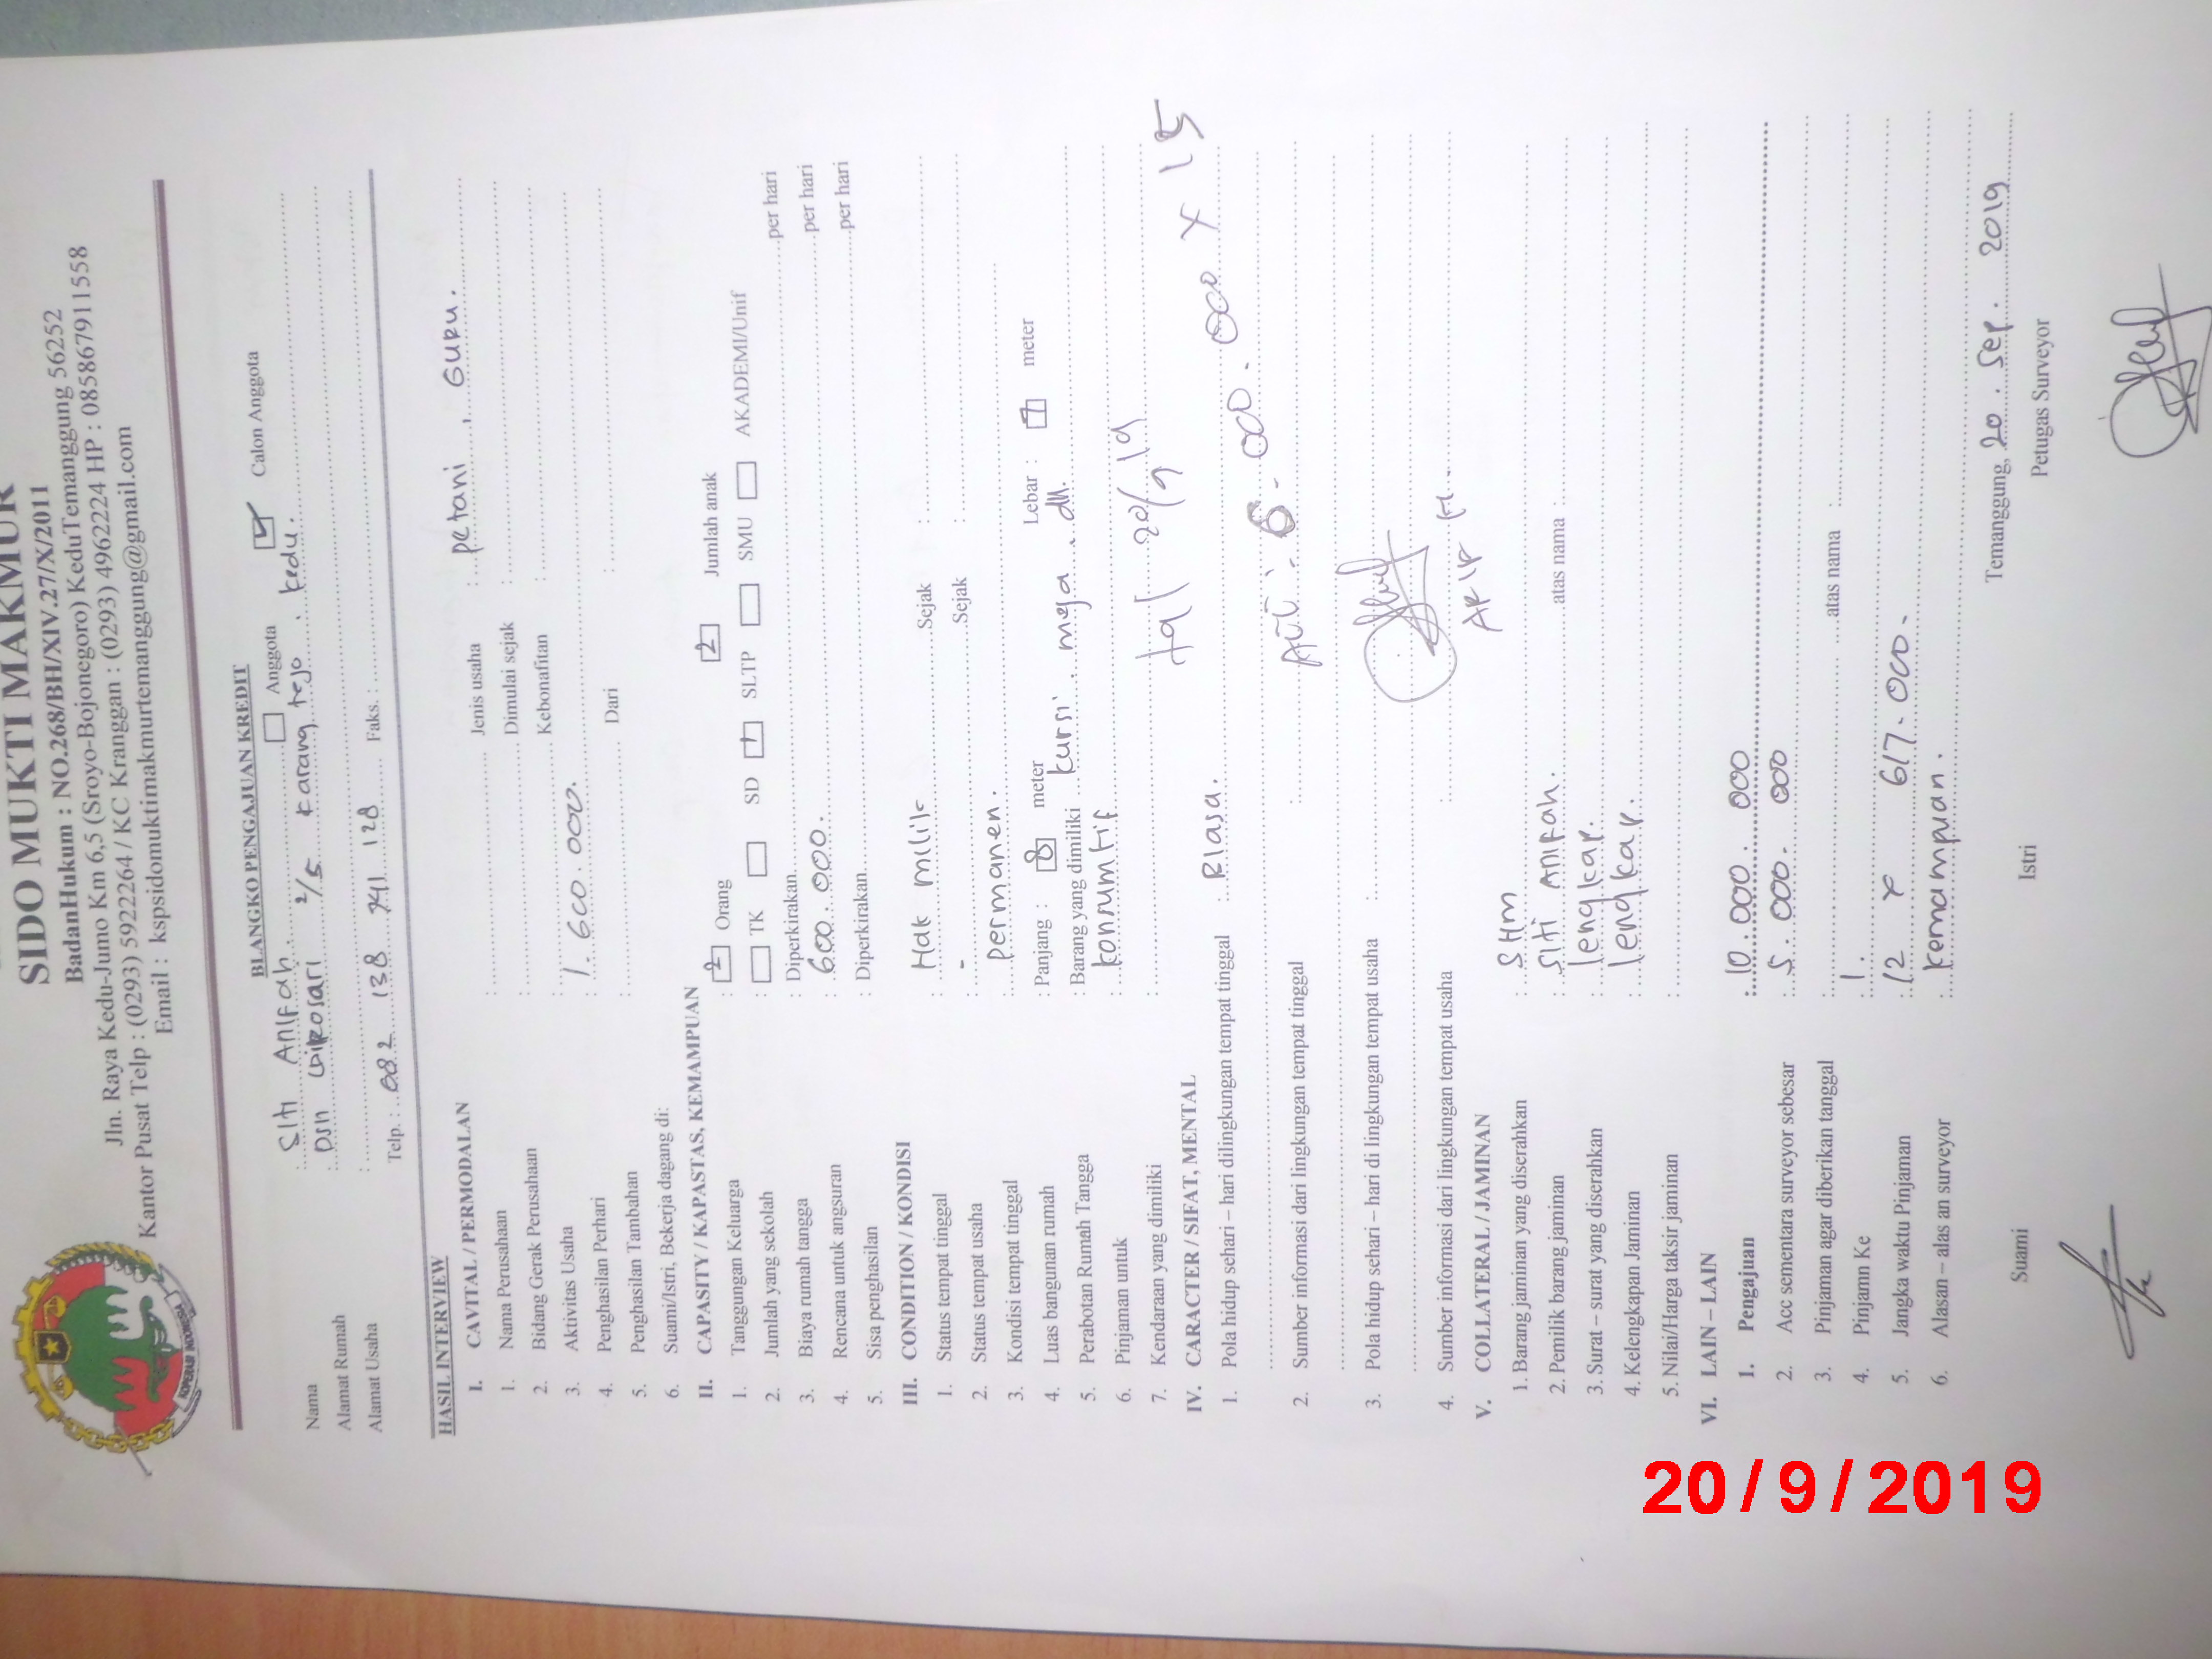 SIDO MUKTI MAKMUR
BadanHukum : NO.268/BH/XIV.27/X/2011
Jln. Raya Kedu-Jumo Km 6,5 (Sroyo-Bojonegoro) KeduTemanggung 56252
Kantor Pusat Telp : (0293) 5922264 / KC Kranggan : (0293) 4962224 HP : 085867911558
Email : kspsidomuktimakmurtemanggung@gmail.com
KOPERASI INDONESIA
BLANGKO PENGAJUAN KREDIT
Nama : Siti Anifah Anggota Calon Anggota
Alamat Rumah : Dsn Wirosari 2/5 Karang tejo . kedu.
Alamat Usaha :
Telp. : 082 138 741 128 Faks. :
HASIL INTERVIEW
I. CAVITAL / PERMODALAN
1. Nama Perusahaan : Jenis usaha : petani , Guru.
2. Bidang Gerak Perusahaan : Dimulai sejak :
3. Aktivitas Usaha : Kebonafitan :
4. Penghasilan Perhari : 1.600.000.
5. Penghasilan Tambahan : Dari :
6. Suami/Istri, Bekerja dagang di:
II. CAPASITY / KAPASTAS, KEMAMPUAN
1. Tanggungan Keluarga : 2 Orang 2 Jumlah anak
2. Jumlah yang sekolah : TK SD 1 SLTP SMU AKADEMI/Unif
3. Biaya rumah tangga : Diperkirakan per hari
4. Rencana untuk angsuran : 600.000. per hari
5. Sisa penghasilan : Diperkirakan per hari
III. CONDITION / KONDISI
1. Status tempat tinggal : Hak milik Sejak :
2. Status tempat usaha : - Sejak :
3. Kondisi tempat tinggal : permanen.
4. Luas bangunan rumah : Panjang : 8 meter Lebar : 7 meter
5. Perabotan Rumah Tangga : Barang yang dimiliki : kursi . meja . dll.
6. Pinjaman untuk : konsumtif
7. Kendaraan yang dimiliki :
tgl 20/9 19
IV. CARACTER / SIFAT, MENTAL
1. Pola hidup sehari – hari dilingkungan tempat tinggal : Biasa.
6.000.000 x 15
2. Sumber informasi dari lingkungan tempat tinggal :
3. Pola hidup sehari – hari di lingkungan tempat usaha :
4. Sumber informasi dari lingkungan tempat usaha :
V. COLLATERAL / JAMINAN
1. Barang jaminan yang diserahkan : SHM
2. Pemilik barang jaminan : Siti Anifah. atas nama :
3. Surat – surat yang diserahkan : lengkap.
4. Kelengkapan Jaminan : lengkap.
5. Nilai/Harga taksir jaminan :
VI. LAIN – LAIN
1. Pengajuan : 10.000.000
2. Acc sementara surveyor sebesar : 5.000.000
3. Pinjaman agar diberikan tanggal : atas nama :
4. Pinjamn Ke : 1.
5. Jangka waktu Pinjaman : 12 x 617.000.
6. Alasan – alas an surveyor : kemampuan.
Temanggung, 20 . Sep . 2019
Suami Istri Petugas Surveyor
20/9/2019